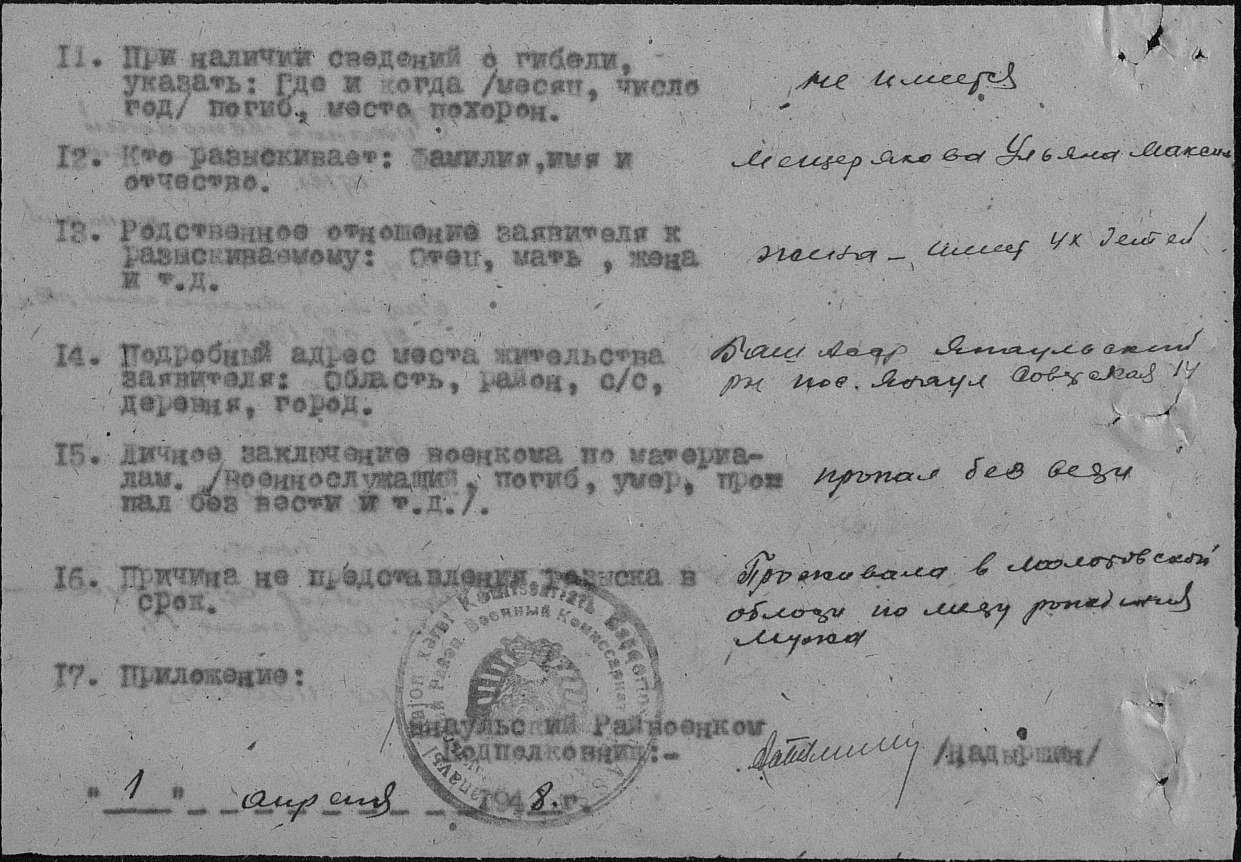 11. При наличии сведений о гибели,
указать: Где и когда /месяц, число
год/ погиб, место похорон.
не имется
12. Кто разыскивает: Фамилия,имя и
отчество.
Мещерякова Ульяна Максим
13. Родственное отношение заявителя к
разыскиваемому: Отец, мать , жена
и т.д.
жена – имеет 4х детей
14. Подробный адрес места жительства
заявителя: Область, район, с/с,
деревня, город.
Баш Асср Янаульский
рн пос. Янаул Совская 14
15. Личное заключение военкома по материа-
лам. /Военнослужащий, погиб, умер, проп
пал без вести и т.д./.
пропал без вези
16. Причина не представления розыска в
срок.
Проживала в Молотовской
облози по мезу рождения
мужа
17. Приложение:
Янаульский Райвоенком
Подполковник:-
/Надыршин/
"1" апреля 1948.г.